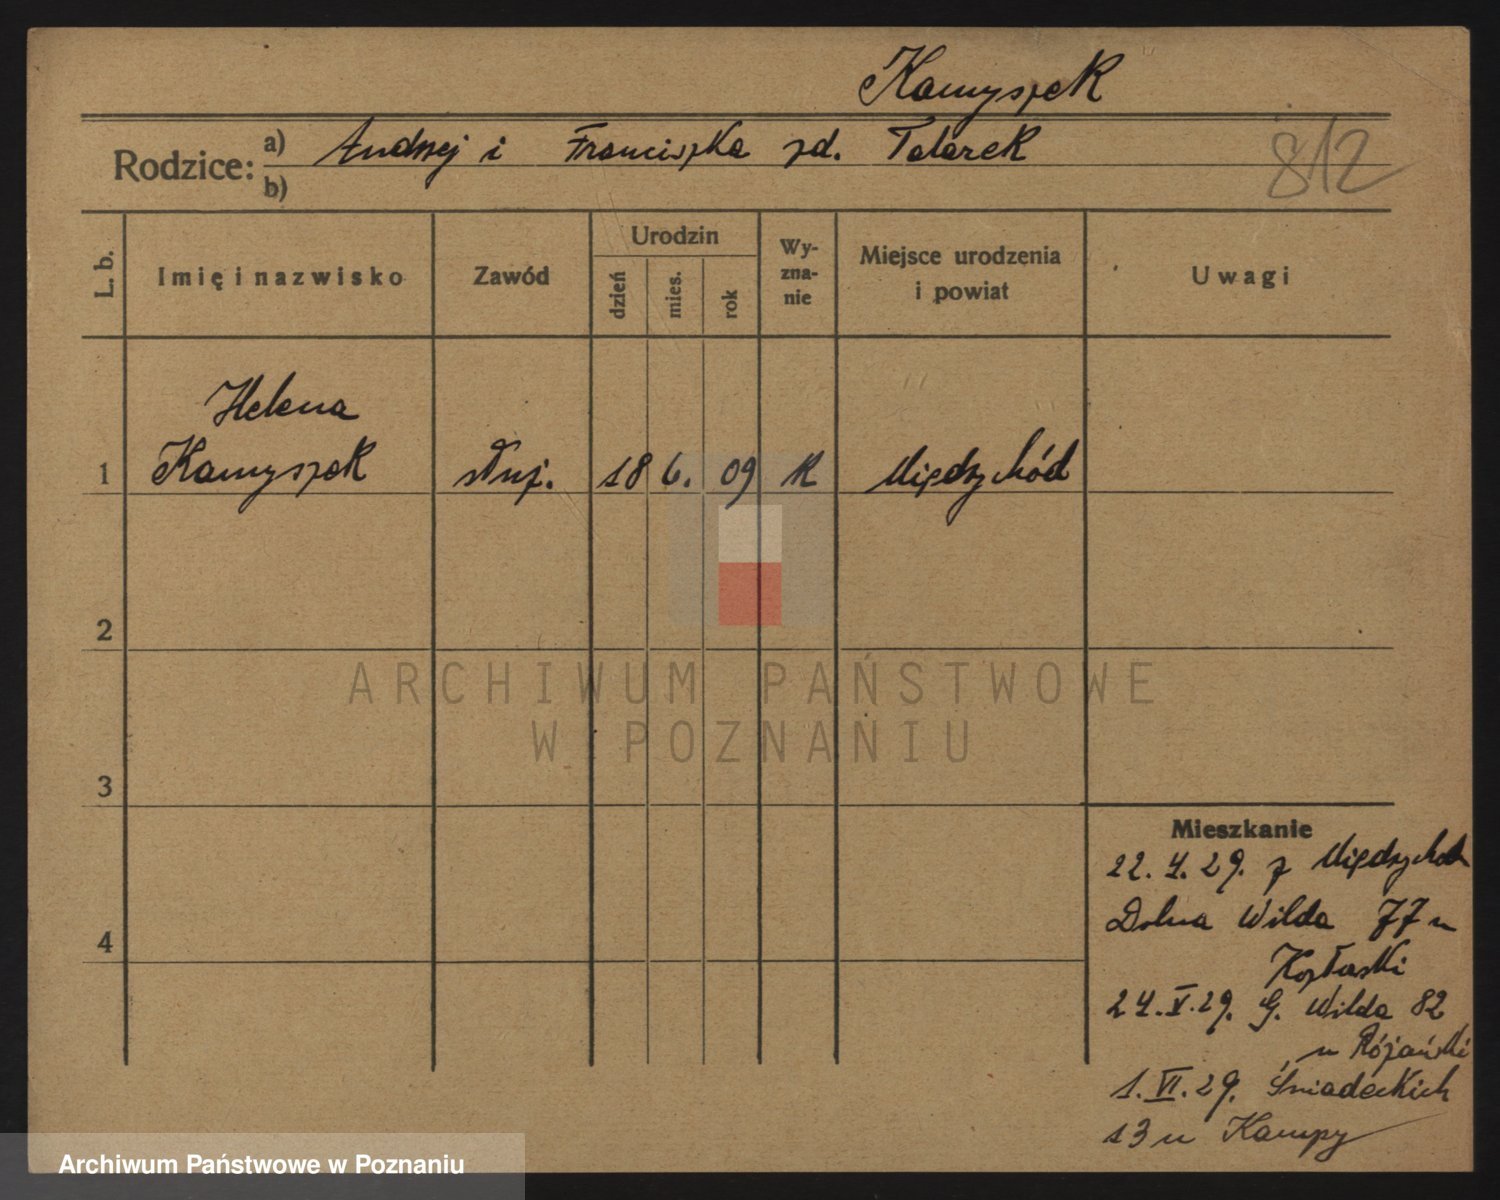 Kamyszek
Rodzice: a) Andrzej i Franciszka zd. Tatarek
b)
812
L. b.
Imię i nazwisko
Zawód
Urodzin
dzień
mies.
rok
Wy-
zna-
nie
Miejsce urodzenia
i powiat
Uwagi
Helena
1 Kamyszek służ. 18 6. 09 K Międzychód
2
3
4
ARCHIWUM PAŃSTWOWE
W POZNANIU
Mieszkanie
22. 4. 29. z Międzychod
Dolna Wilda 77 u
Kozłaski
24. V. 29. G. Wilda 82
u Różański
1. VI. 29. Śniadeckich
13 u Kampy
Archiwum Państwowe w Poznaniu